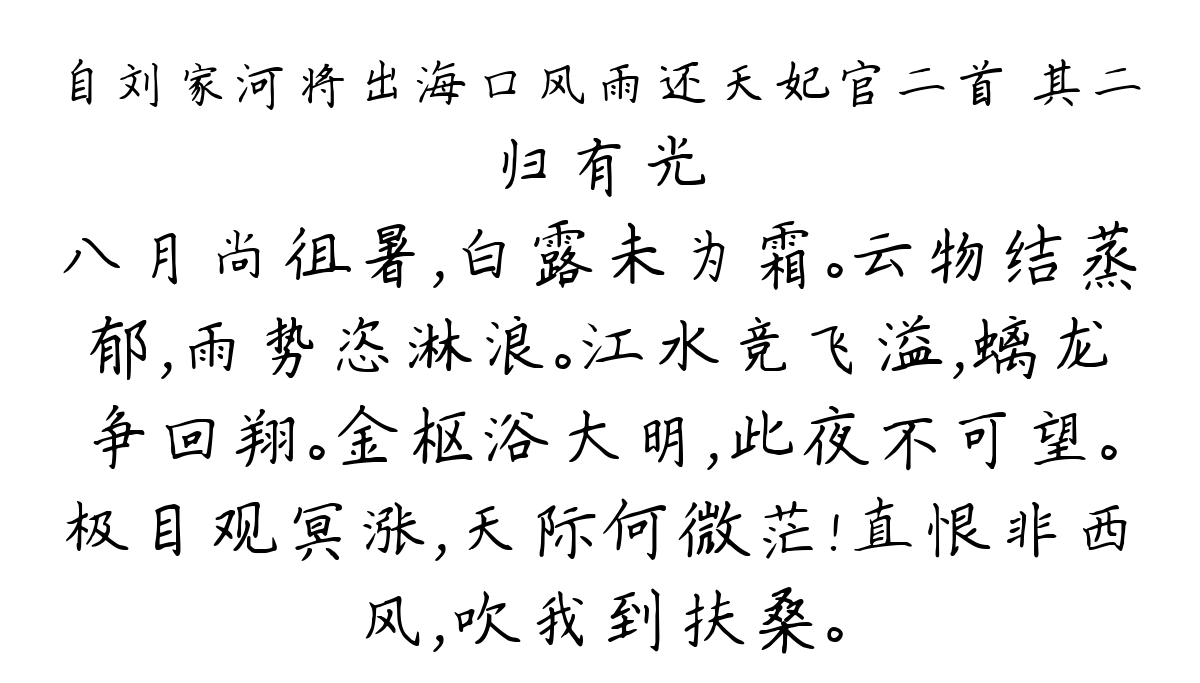 自刘家河将出海口风雨还天妃官二首 其二
归有光
八月尚徂暑,白露未为霜。云物结蒸
郁,雨势恣淋浪。江水竞飞溢,螭龙
争回翔。金枢浴大明,此夜不可望。
极目观冥涨,天际何微茫!直恨非西
风,吹我到扶桑。